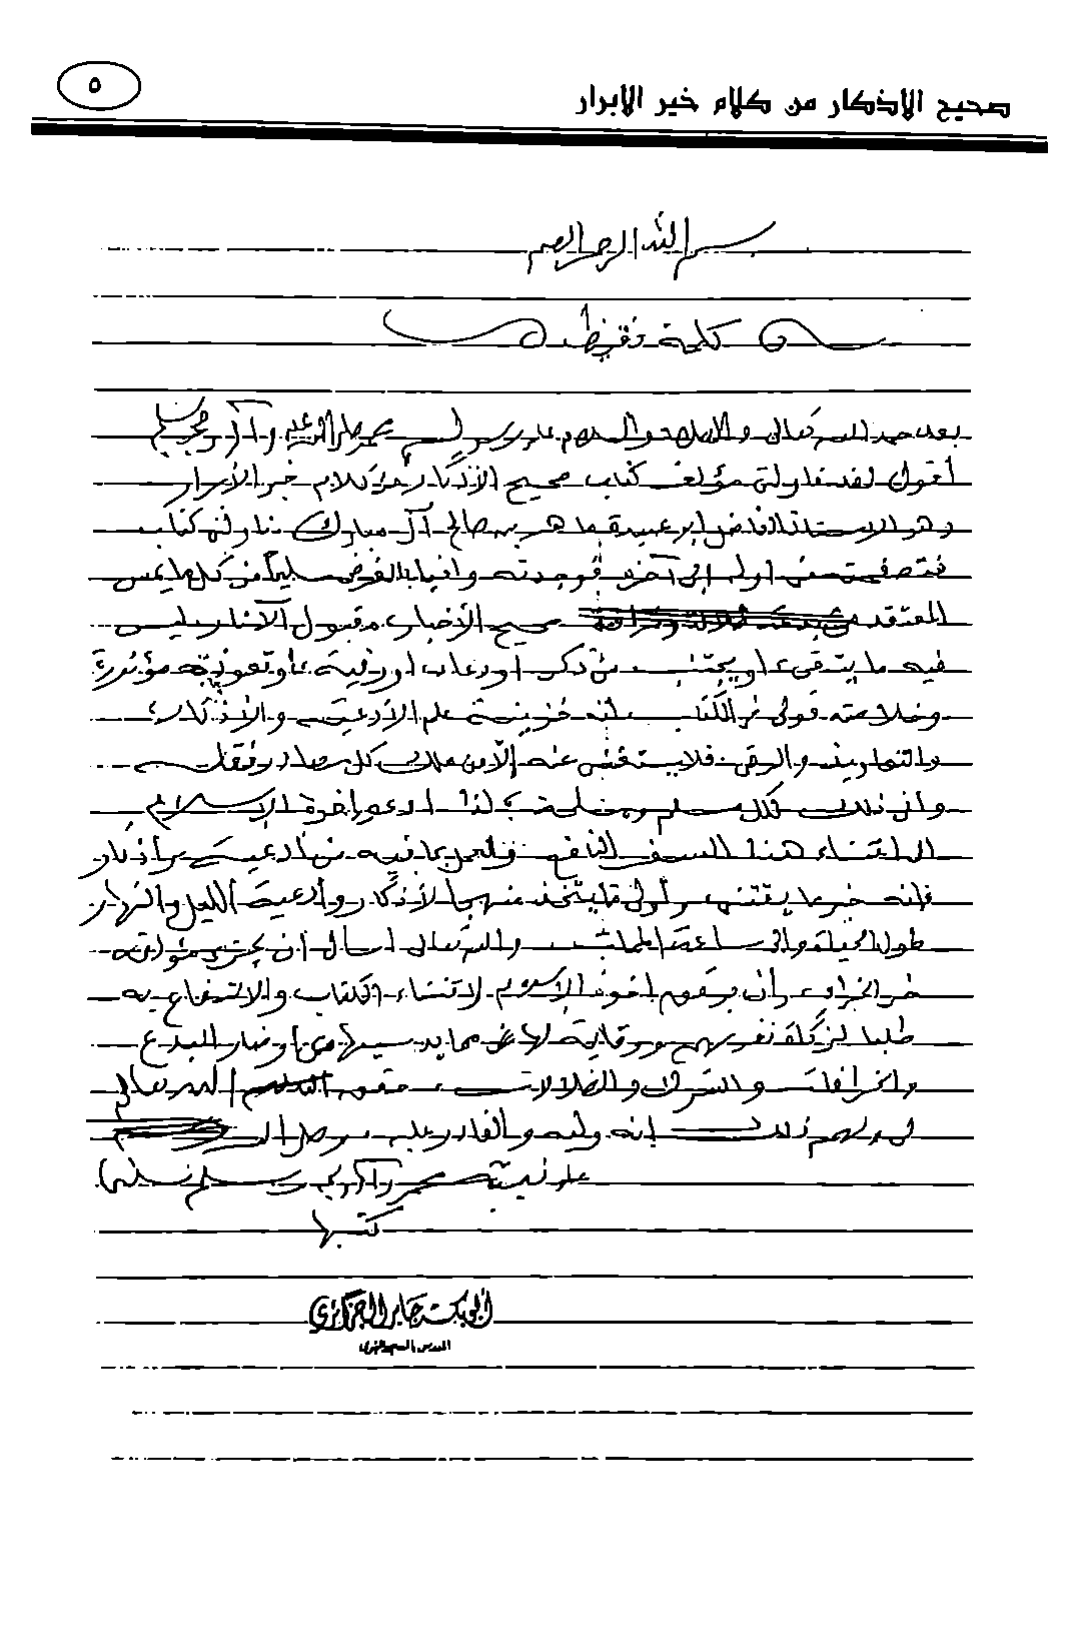 صحيح الاذكار من كلام خير الابرار
٥
بسم الله الرحمن الرحيم
كلمة تقريظ
بعد حمد الله تعالى والصلاة والسلام على رسوله محمد صلى الله عليه وآله وصحبه وسلم
أقول لقد ناولني مؤلف كتاب صحيح الأذكار من كلام خير الأبرار
وهو الاستاذ الفاضل ابو عبيدة ماهر بن صالح آل مبارك ناولني كتابه
فتصفحته من أوله إلى آخره فوجدته وافيا بالغرض سليماً من كل ما يمس
المعتقد صحيح الأخبار مقبول الآثار ليس
فيه ما يتقى او يجتنب من ذكر او دعاء او رقية او تعويذة مؤثرة
وخلاصة قولي في الكتاب انه خزينة علم الأدعية والأذكار
والتعاويذ والرقى فلا يستغنى عنه
وان ذلك لكل مسلم ومسلمة لذا ادعو إخوة الإسلام
الى اقتناء هذا السفر النافع والعمل بما فيه من أدعية وأذكار
فإنه خير ما يقتنى وأولى ما يتخذ منهجا لأذكار وأدعية الليل والنهار
طول الحياة والى ساعة الممات والله تعالى اسأل أن يجزي مؤلفه
خير الجزاء وأن يوفق إخوة الإسلام لاقتناء الكتاب والانتفاع به
طلبا لزكاة نفوسهم ووقاية لها مما يدسيها من أوضار البدع
والخرافات والشرك والضلالات حقق الله تعالى
لي ولهم ذلك إنه وليه والقادر عليه وصل اللهم
على نبيك محمد وآله وصحبه وسلم تسليما
كتبها
أبو بكر جابر الجزائري
المدرس بالمسجد النبوي